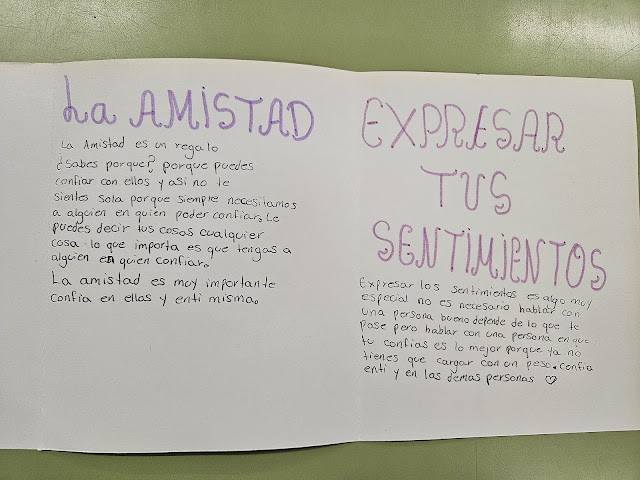 La AMISTAD
La Amistad es un regalo
¿Sabes porque? porque puedes
confiar con ellos y asi no te
sientes sola porque siempre necesitamos
a alguien en quien poder confiar. Le
puedes decir tus cosas cualquier
cosa lo que importa es que tengas a
alguien en quien confiar.
La amistad es muy importante
confia en ellos y enti misma.
EXPRESAR
TUS
SENTIMIENTOS
Expresar los sentimientos es algo muy
especial no es necesario hablar con
una persona bueno depende de lo que te
pase pero hablar con una persona en que
tu confias es lo mejor porque ya no
tienes que cargar con un peso. Confia
enti y en las demas personas ♡